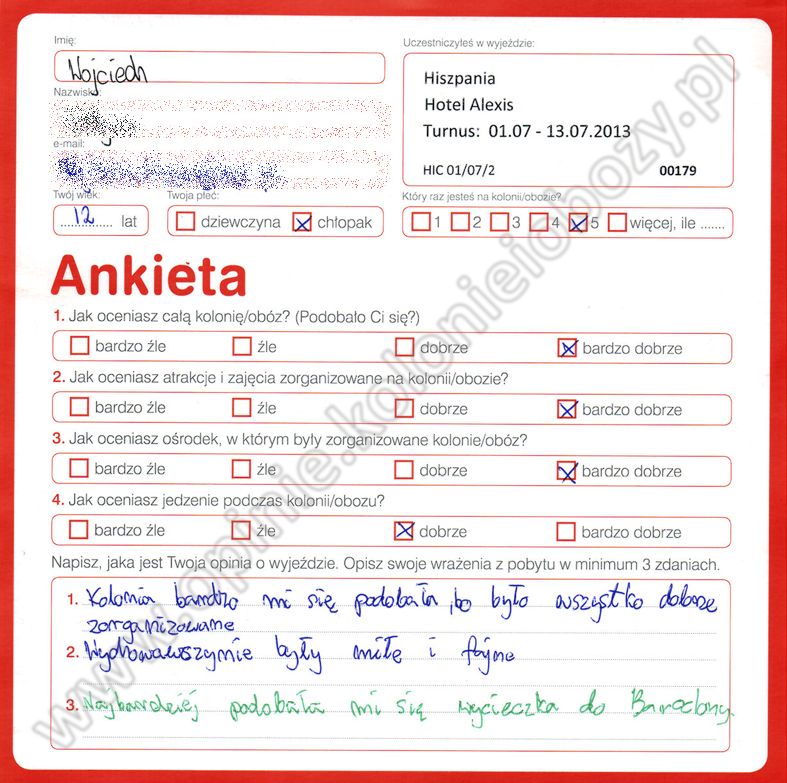 Imię:
Wojciech
Nazwisko:
e-mail:
Twój wiek:
12 lat
Twoja płeć:
dziewczyna chłopak
Uczestniczyłeś w wyjeździe:
Hiszpania
Hotel Alexis
Turnus: 01.07 - 13.07.2013
HIC 01/07/2 00179
Który raz jesteś na kolonii/obozie?
1 2 3 4 5 więcej, ile .......
Ankieta
1. Jak oceniasz całą kolonię/obóz? (Podobało Ci się?)
bardzo źle źle dobrze bardzo dobrze
2. Jak oceniasz atrakcje i zajęcia zorganizowane na kolonii/obozie?
bardzo źle źle dobrze bardzo dobrze
3. Jak oceniasz ośrodek, w którym były zorganizowane kolonie/obóz?
bardzo źle źle dobrze bardzo dobrze
4. Jak oceniasz jedzenie podczas kolonii/obozu?
bardzo źle źle dobrze bardzo dobrze
Napisz, jaka jest Twoja opinia o wyjeździe. Opisz swoje wrażenia z pobytu w minimum 3 zdaniach.
1. Kolonia bardzo mi się podobała, bo było wszystko dobrze
zorganizowane
2. Wychowawszynie były miłe i fajne
3. Najbardziej podobała mi się wycieczka do Barcelony.
www.opinie.kolonieiobozy.pl